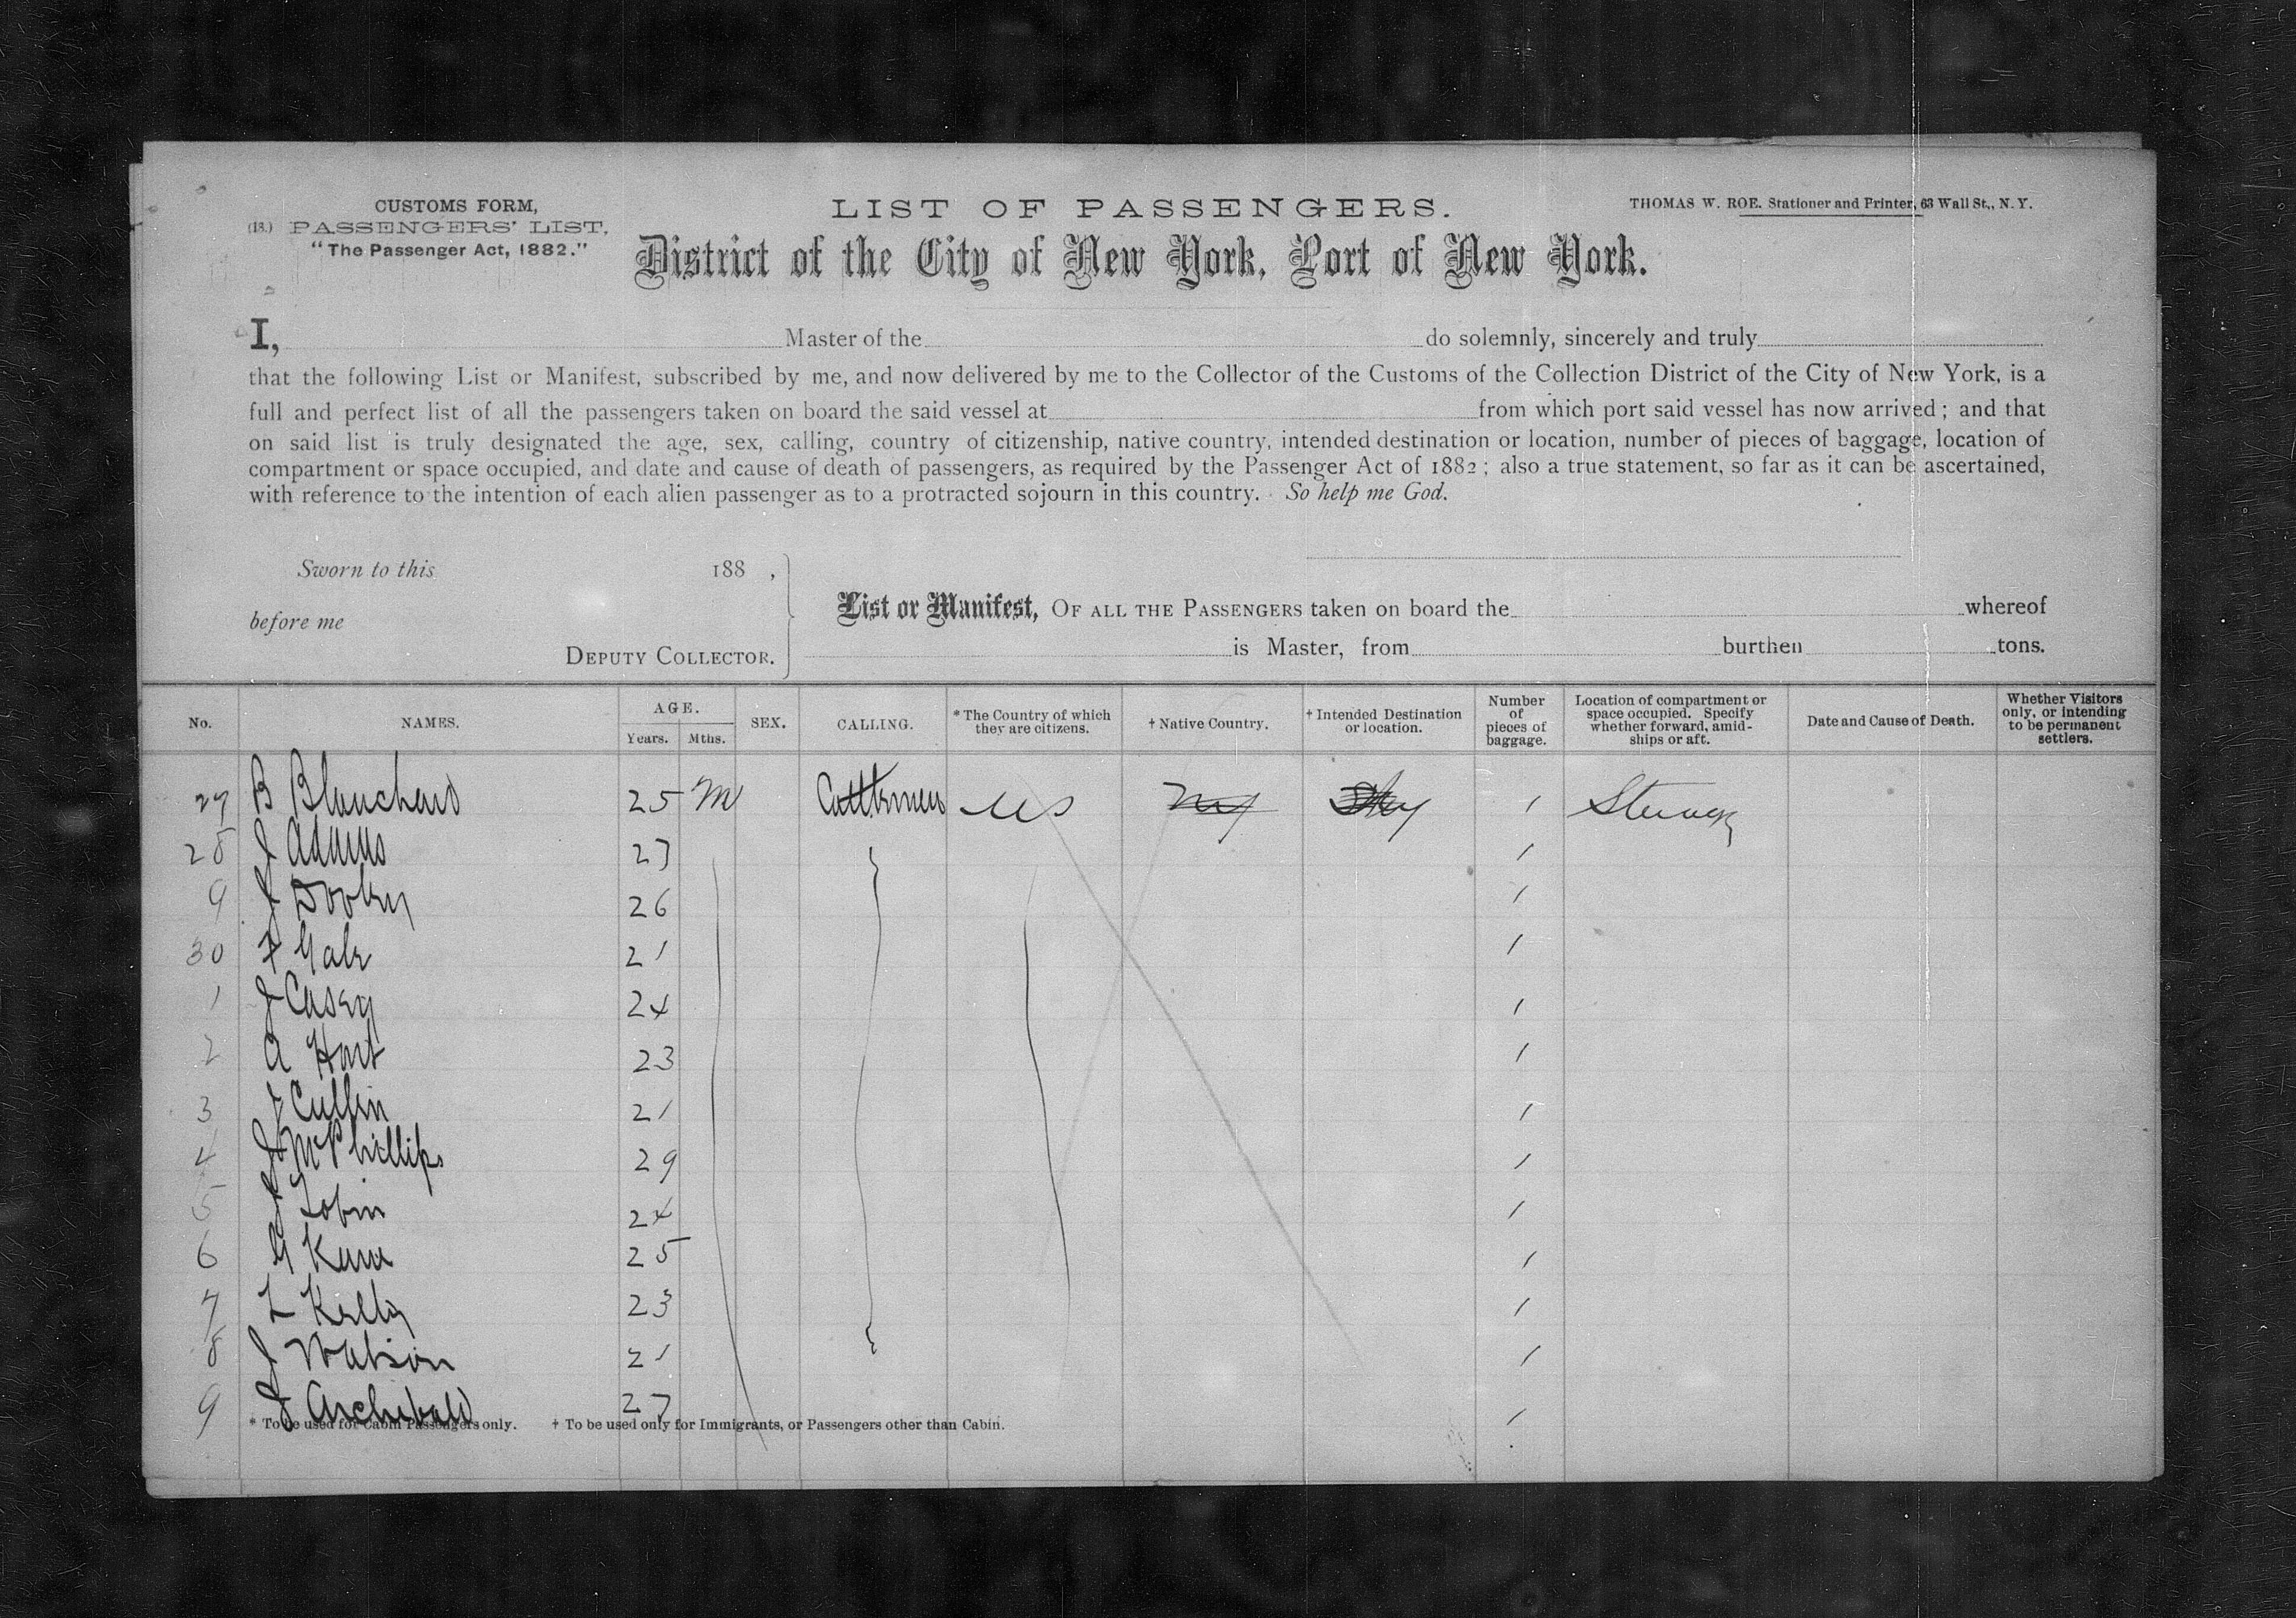 CUSTOMS FORM,
(18.) PASSENGERS' LIST,
"The Passenger Act, 1882."
LIST OF PASSENGERS.
THOMAS W. ROE. Stationer and Printer, 63 Wall St., N. Y.
District of the City of New York, Port of New York.
I, Master of the do solemnly, sincerely and truly
that the following List or Manifest, subscribed by me, and now delivered by me to the Collector of the Customs of the Collection District of the City of New York, is a
full and perfect list of all the passengers taken on board the said vessel at from which port said vessel has now arrived; and that
on said list is truly designated the age, sex, calling, country of citizenship, native country, intended destination or location, number of pieces of baggage, location of
compartment or space occupied, and date and cause of death of passengers, as required by the Passenger Act of 1882; also a true statement, so far as it can be ascertained,
with reference to the intention of each alien passenger as to a protracted sojourn in this country. So help me God.
Sworn to this 188 ,
before me
DEPUTY COLLECTOR.
List or Manifest, OF ALL THE PASSENGERS taken on board the whereof
is Master, from burthen tons.
No. NAMES. AGE. Years. Mths. SEX. CALLING. * The Country of which they are citizens. † Native Country. † Intended Destination or location. Number of pieces of baggage. Location of compartment or space occupied. Specify whether forward, amid-ships or aft. Date and Cause of Death. Whether Visitors only, or intending to be permanent settlers.
27 B Blanchard 25 M Cattlemen US 1
28 J Adams 27 1
9 J Dooley 26 1
30 F Gale 21 1
1 J Casey 24 1
2 A Hart 23 1
3 J Cullin 21 1
4 J McPhillips 29 1
5 J Tobin 24 1
6 G 25 1
7 L Kelly 23 1
8 J Watson 21 1
9 J Archibald 27 1
* To be used for Cabin Passengers only. † To be used only for Immigrants, or Passengers other than Cabin.